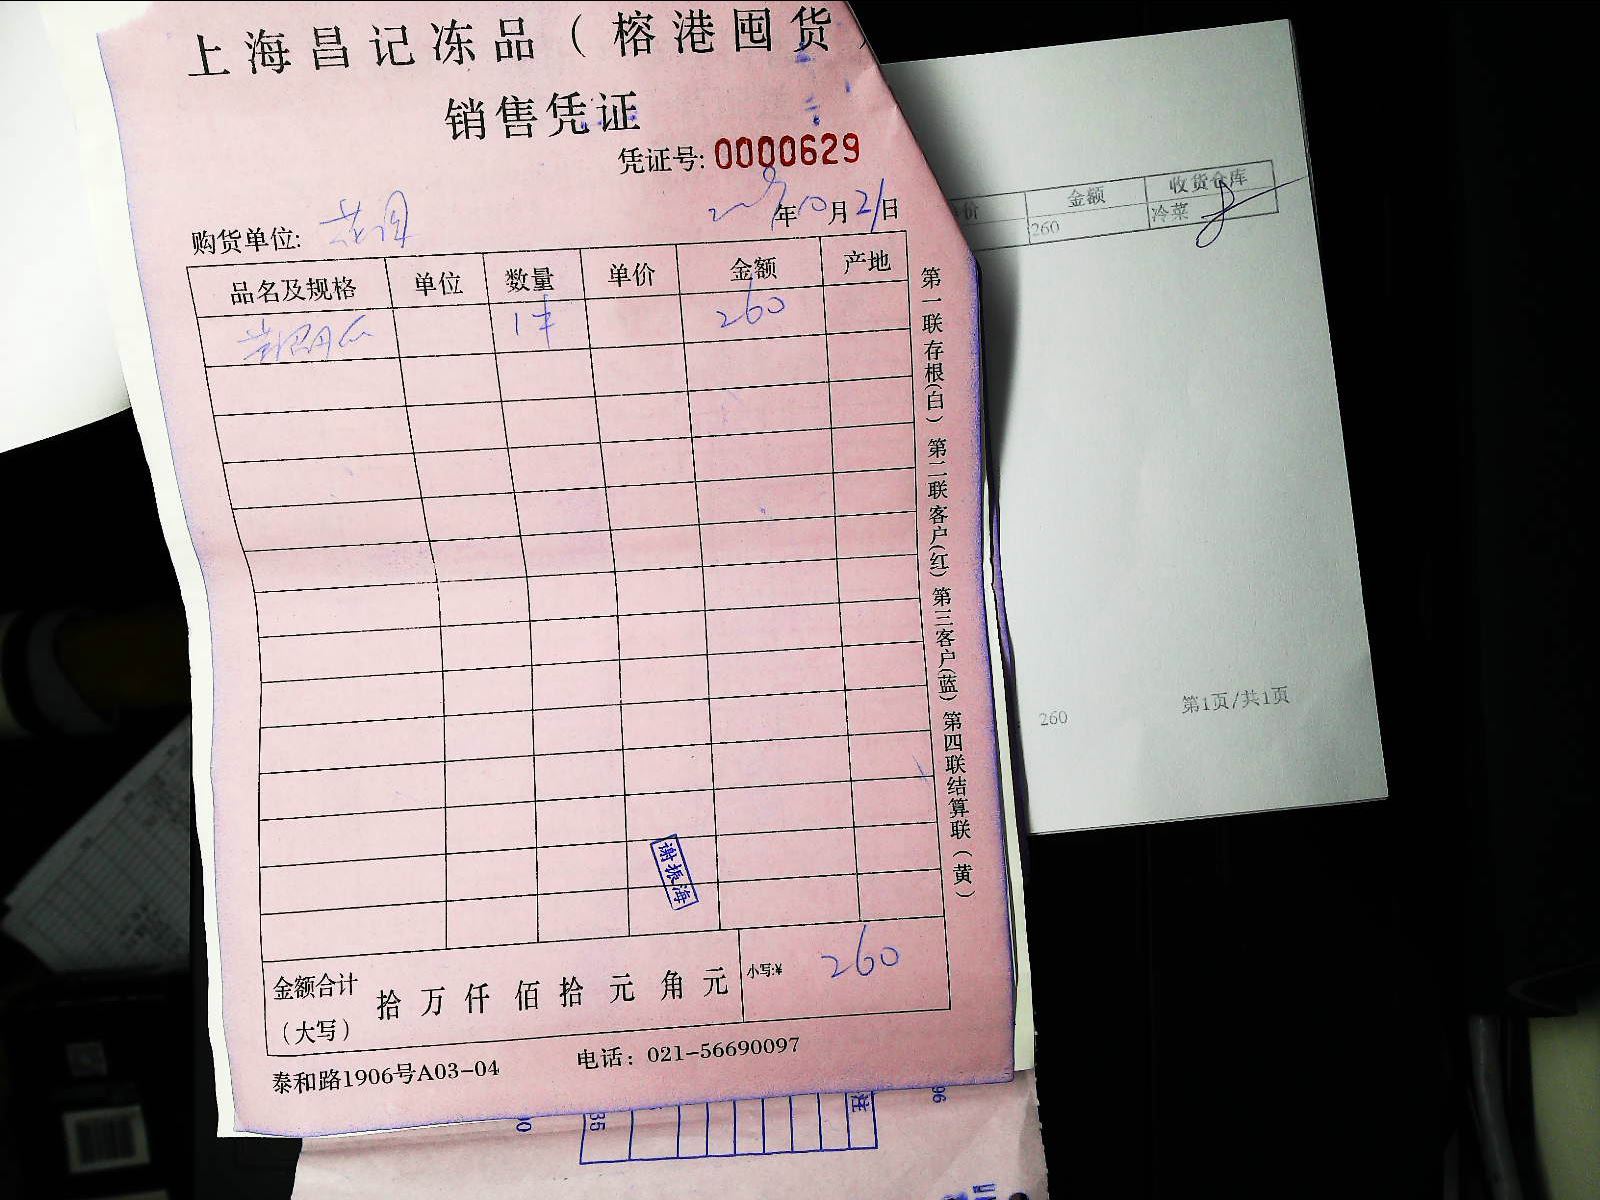 上海昌记冻品（榕港囤货）
销售凭证
凭证号: 0000629
年10月21日
购货单位:
品名及规格 单位 数量 单价 金额 产地
1件 260
第一联存根(白) 第二联客户(红) 第三客户(蓝) 第四联结算联（黄）
谢振海
金额合计（大写） 拾 万 仟 佰 拾 元 角 元 小写:¥ 260
泰和路1906号A03-04 电话：021-56690097
金额 收货仓库
260 冷菜
260 第1页/共1页